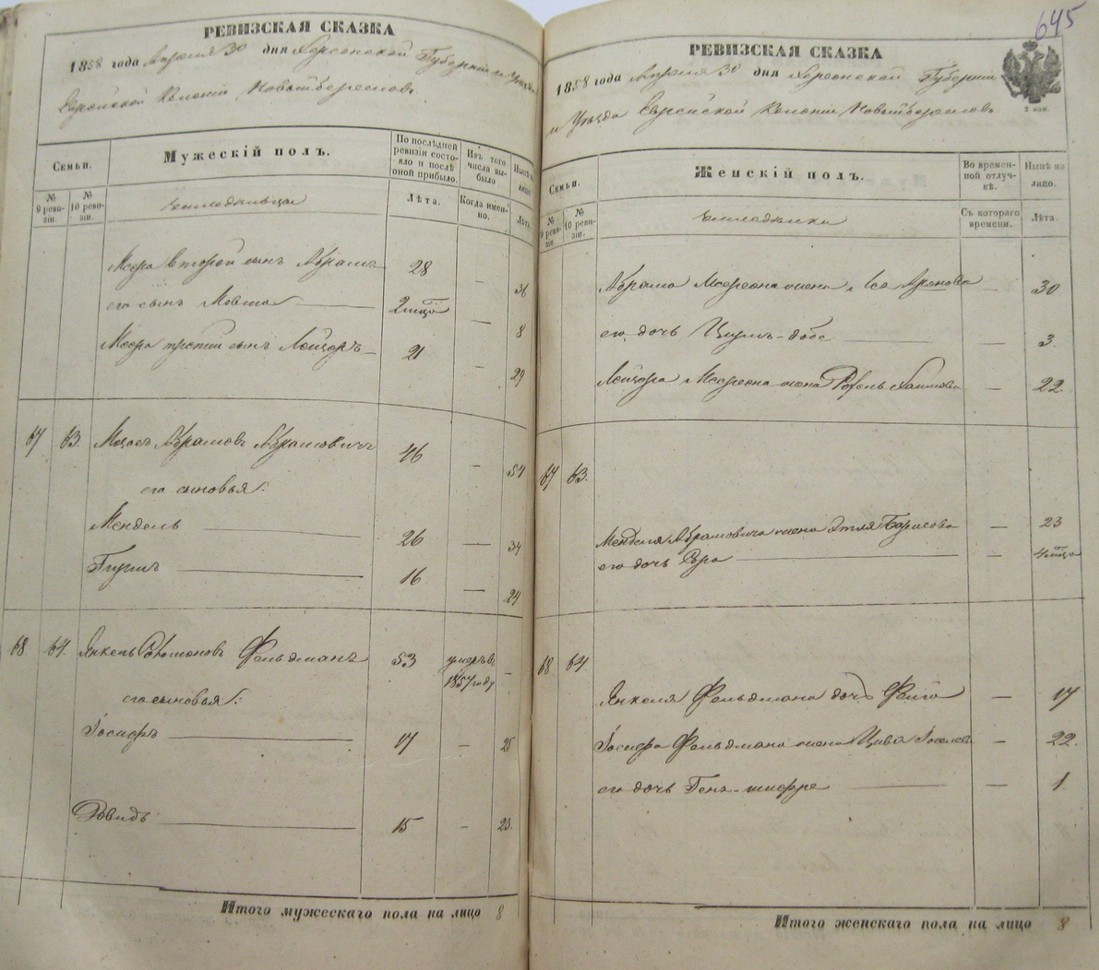 РЕВИЗСКАЯ СКАЗКА
1858 года Апреля 30 дня Херсонской Губерніи и Уезда
Еврейской Колоніи Новый Береслов
Семьи.
Мужескій полъ.
По последней ревизіи состояло и послѣ оной прибыло.
Изъ того числа выбыло
Нынѣ на лицо
№ 9 ревизіи.
№ 10 ревизіи.
Лѣта.
Когда именно.
Лѣта.
Меера второй сынъ Абрамъ 28 — 36
его сынъ Мовша 2 мѣц — 8
Меера третій сынъ Лейзоръ 21 — 29
67 63 Абрамовъ Абрамовичъ 46 — 54
его сыновья:
Мендель 26 — 34
Гиршъ 16 — 24
68 64. Янкель Соломоновъ Фельдманъ 53 умеръ въ 1857 году —
его сыновья:
Іосифъ 17 — 25
Дувидъ 15 — 23.
Итого мужескаго пола на лицо 8
645
РЕВИЗСКАЯ СКАЗКА
1858 года Апреля 30 дня Херсонской Губерніи
и Уѣзда Еврейской Колоніи Новый Береслов
2 коп.
Семьи.
Женскій полъ.
Во временной отлучкѣ.
Нынѣ на лицо.
№ 9 ревизіи.
№ 10 ревизіи.
Съ котораго времени.
Лѣта.
Абрама Меерова жена Лея Аронова — 30
его дочь — 3.
Лейзора Меерова жена Хаимова — 22
67 63.
Менделя Абрамовича жена Этля Борисова — 23
его дочь Сура — 4 мѣца
68 64
Янкеля Фельдмана дочь Фейга — 17
Іосифа Фельдмана жена Цива — 22.
его дочь — 1
Итого женскаго пола на лицо 8